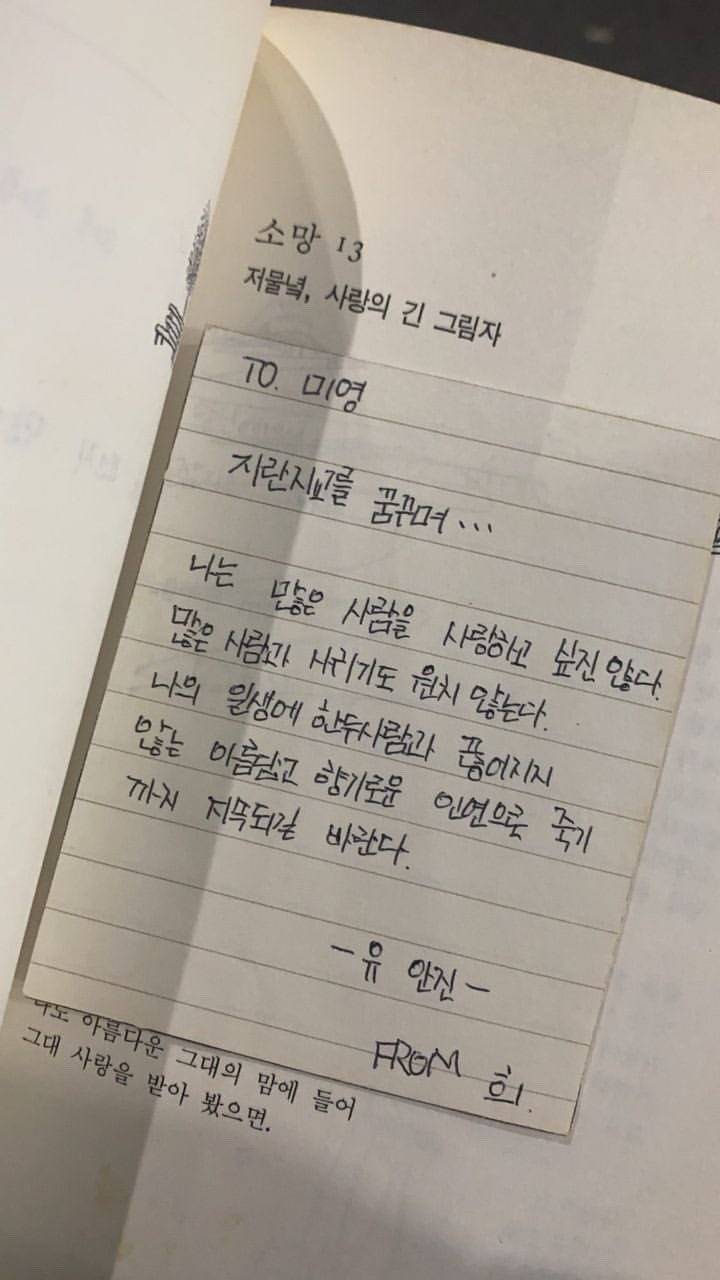 소망 13
저물녘, 사랑의 긴 그림자
TO. 미영
지란지교를 꿈꾸며...
나는 많은 사람을 사랑하고 싶진 않다.
많은 사람과 사귀기도 원치 않는다.
나의 일생에 한두사람과 끊어지지
않는 아름답고 향기로운 인연으로 죽기
까지 지속되길 바란다.
-유 안진-
FROM 희.
나도 아름다운 그대의 맘에 들어
그대 사랑을 받아 봤으면.